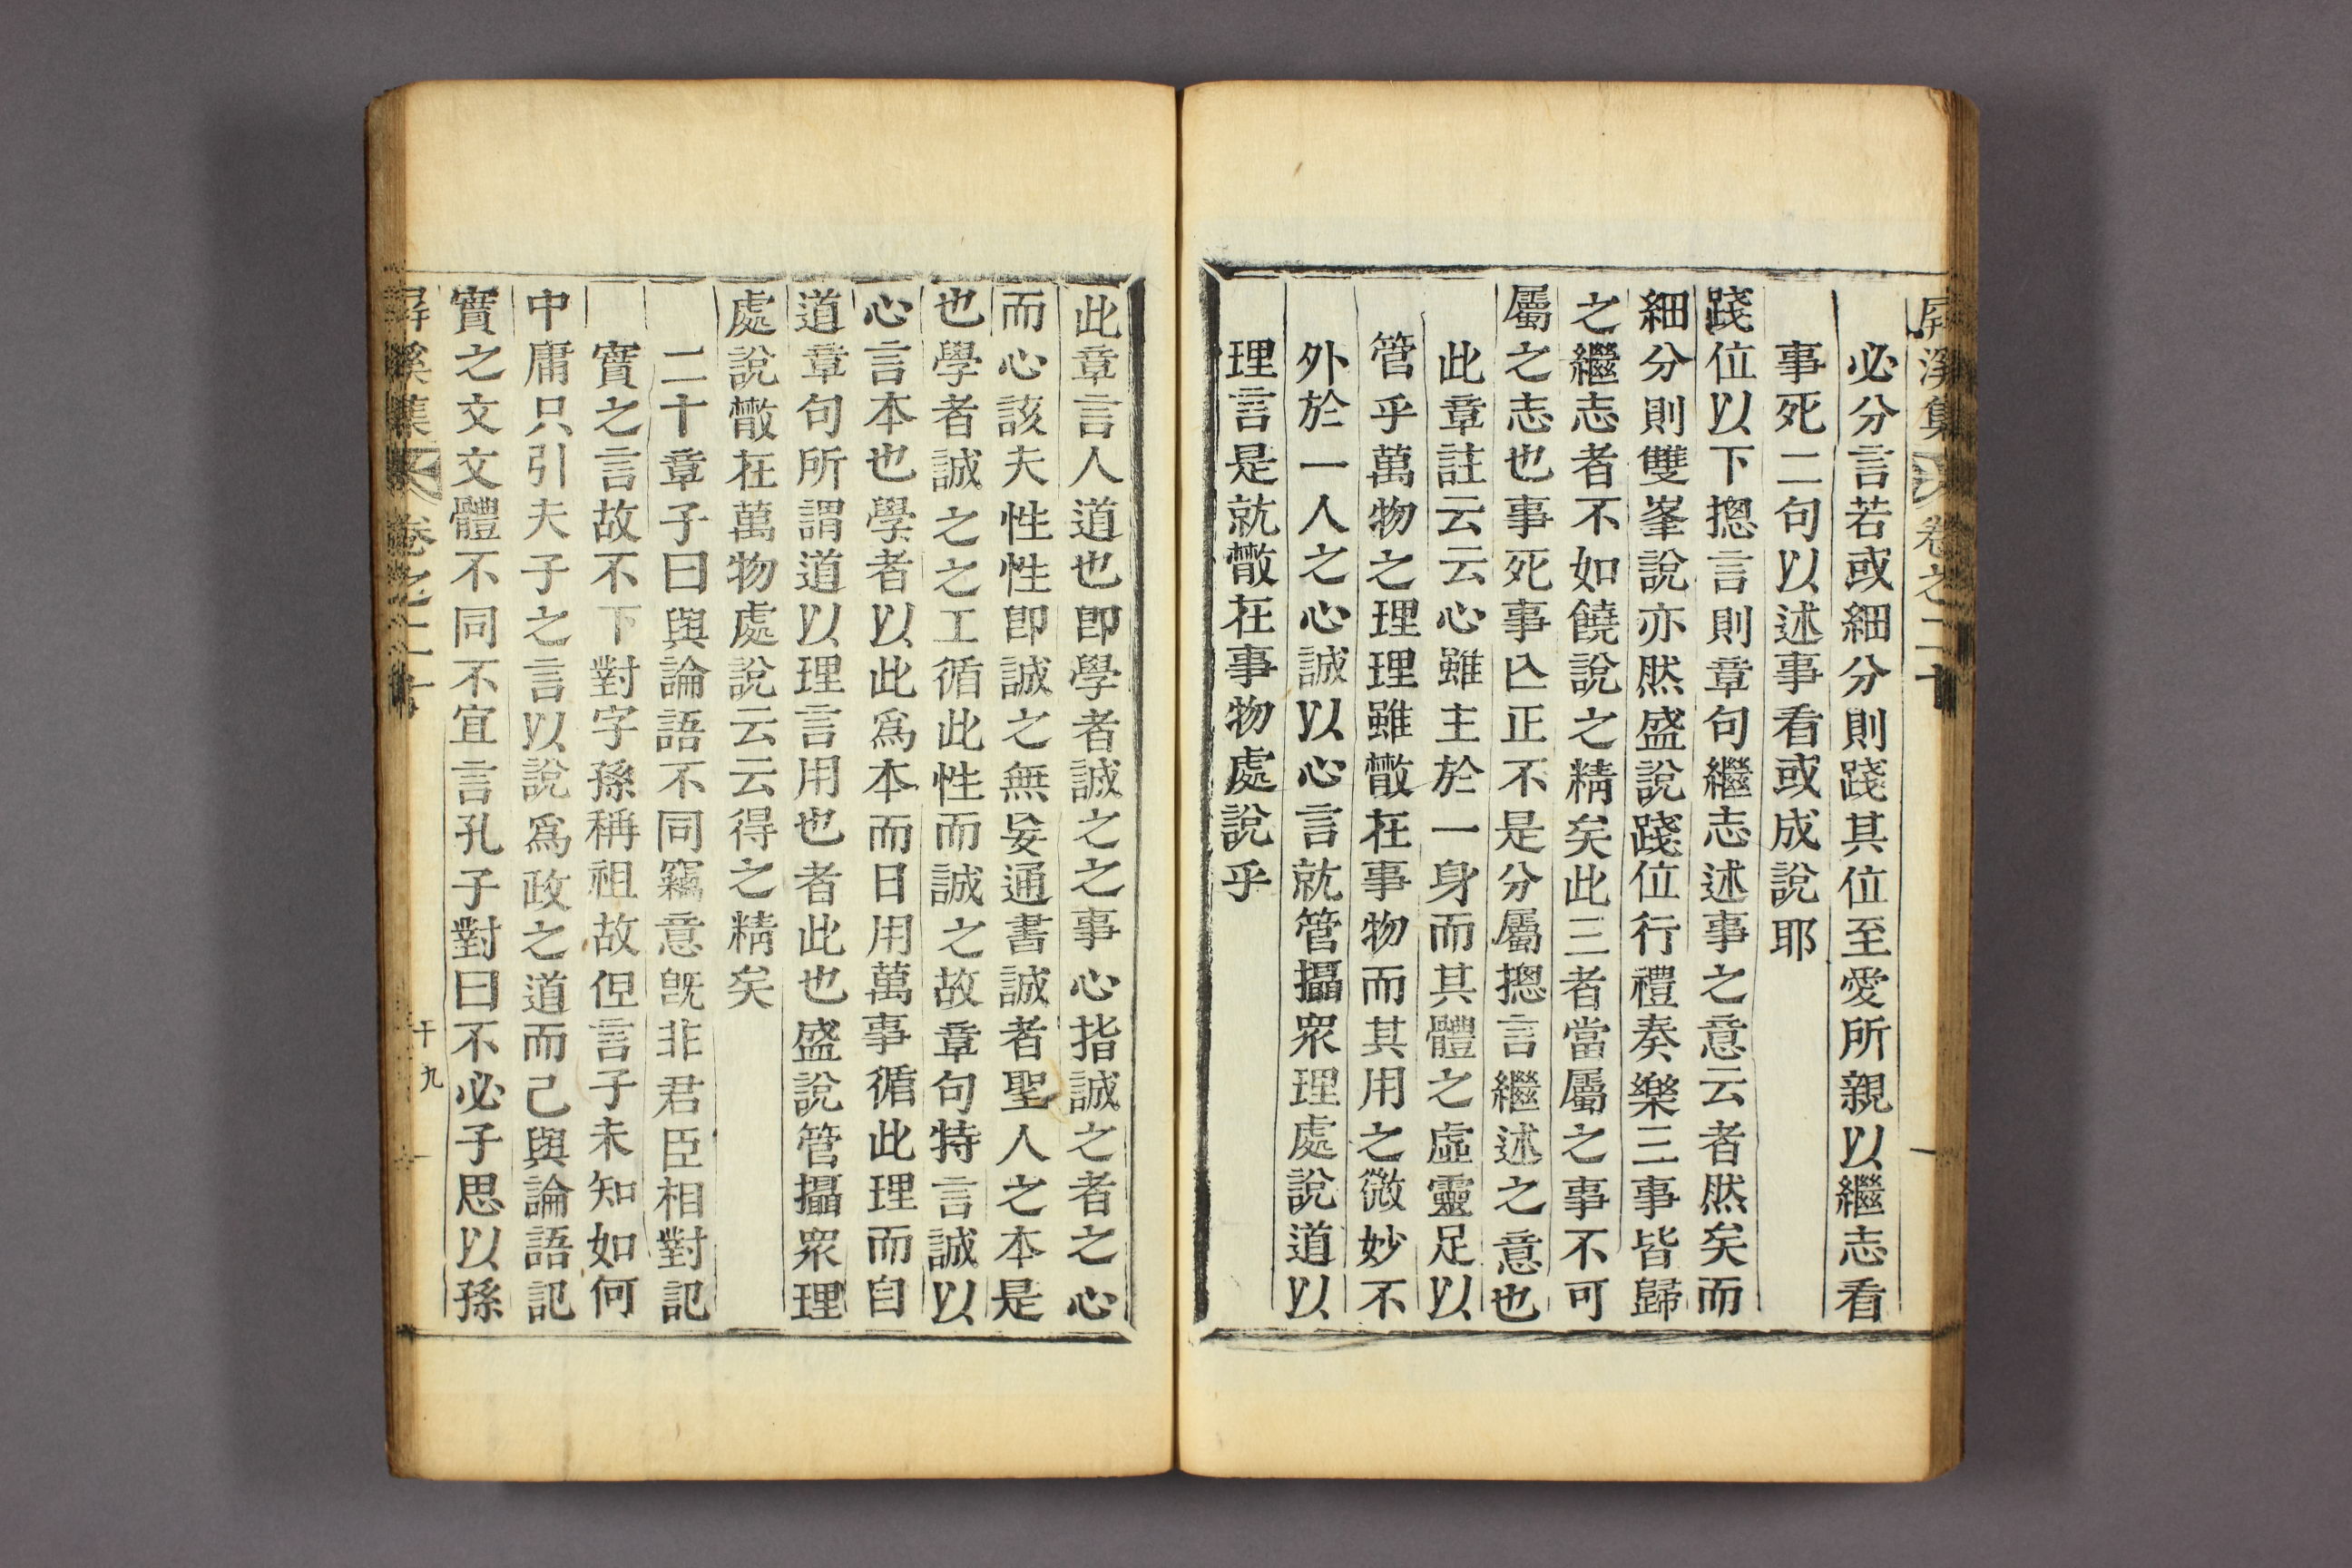 屛溪集
卷之二十
必分言若或細分則踐其位至愛所親以繼志看
事死二句以述事看或成說耶
踐位以下摠言則章句繼志述事之意云者然矣而
細分則雙峯說亦然盛說踐位行禮奏樂三事皆歸
之繼志者不如饒說之精矣此三者當屬之事不可
屬之志也事死事亾正不是分屬摠言繼述之意也
此章註云云心雖主於一身而其體之虛靈足以
管乎萬物之理理雖散在事物而其用之微妙不
外於一人之心誠以心言就管攝衆理處說道以
理言是就散在事物處說乎
此章言人道也卽學者誠之之事心指誠之者之心
而心該夫性性卽誠之無妄通書誠者聖人之本是
也學者誠之之工循此性而誠之故章句特言誠以
心言本也學者以此爲本而日用萬事循此理而自
道章句所謂道以理言用也者此也盛說管攝衆理
處說散在萬物處說云云得之精矣
二十章子曰與論語不同竊意旣非君臣相對記
實之言故不下對字孫稱祖故但言子未知如何
中庸只引夫子之言以說爲政之道而己與論語記
實之文文體不同不宜言孔子對曰不必子思以孫
屛溪集
卷之二十
十九